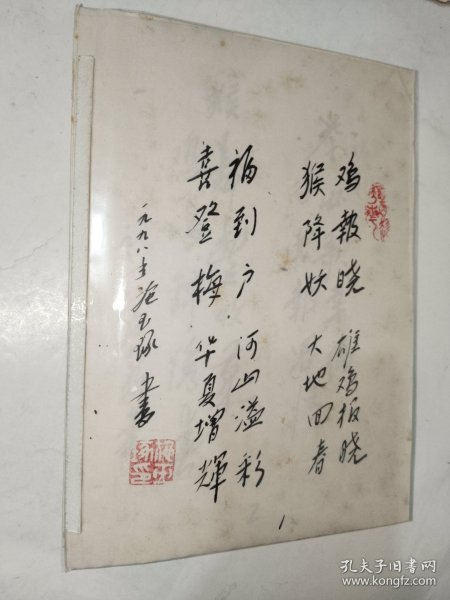 鸡報晓 雄鸡报晓
猴降妖 大地回春
福到户 河山溢彩
喜登梅 华夏增輝
一九九八年施玉琢 书
1
孔夫子旧书网
www.kongfz.com